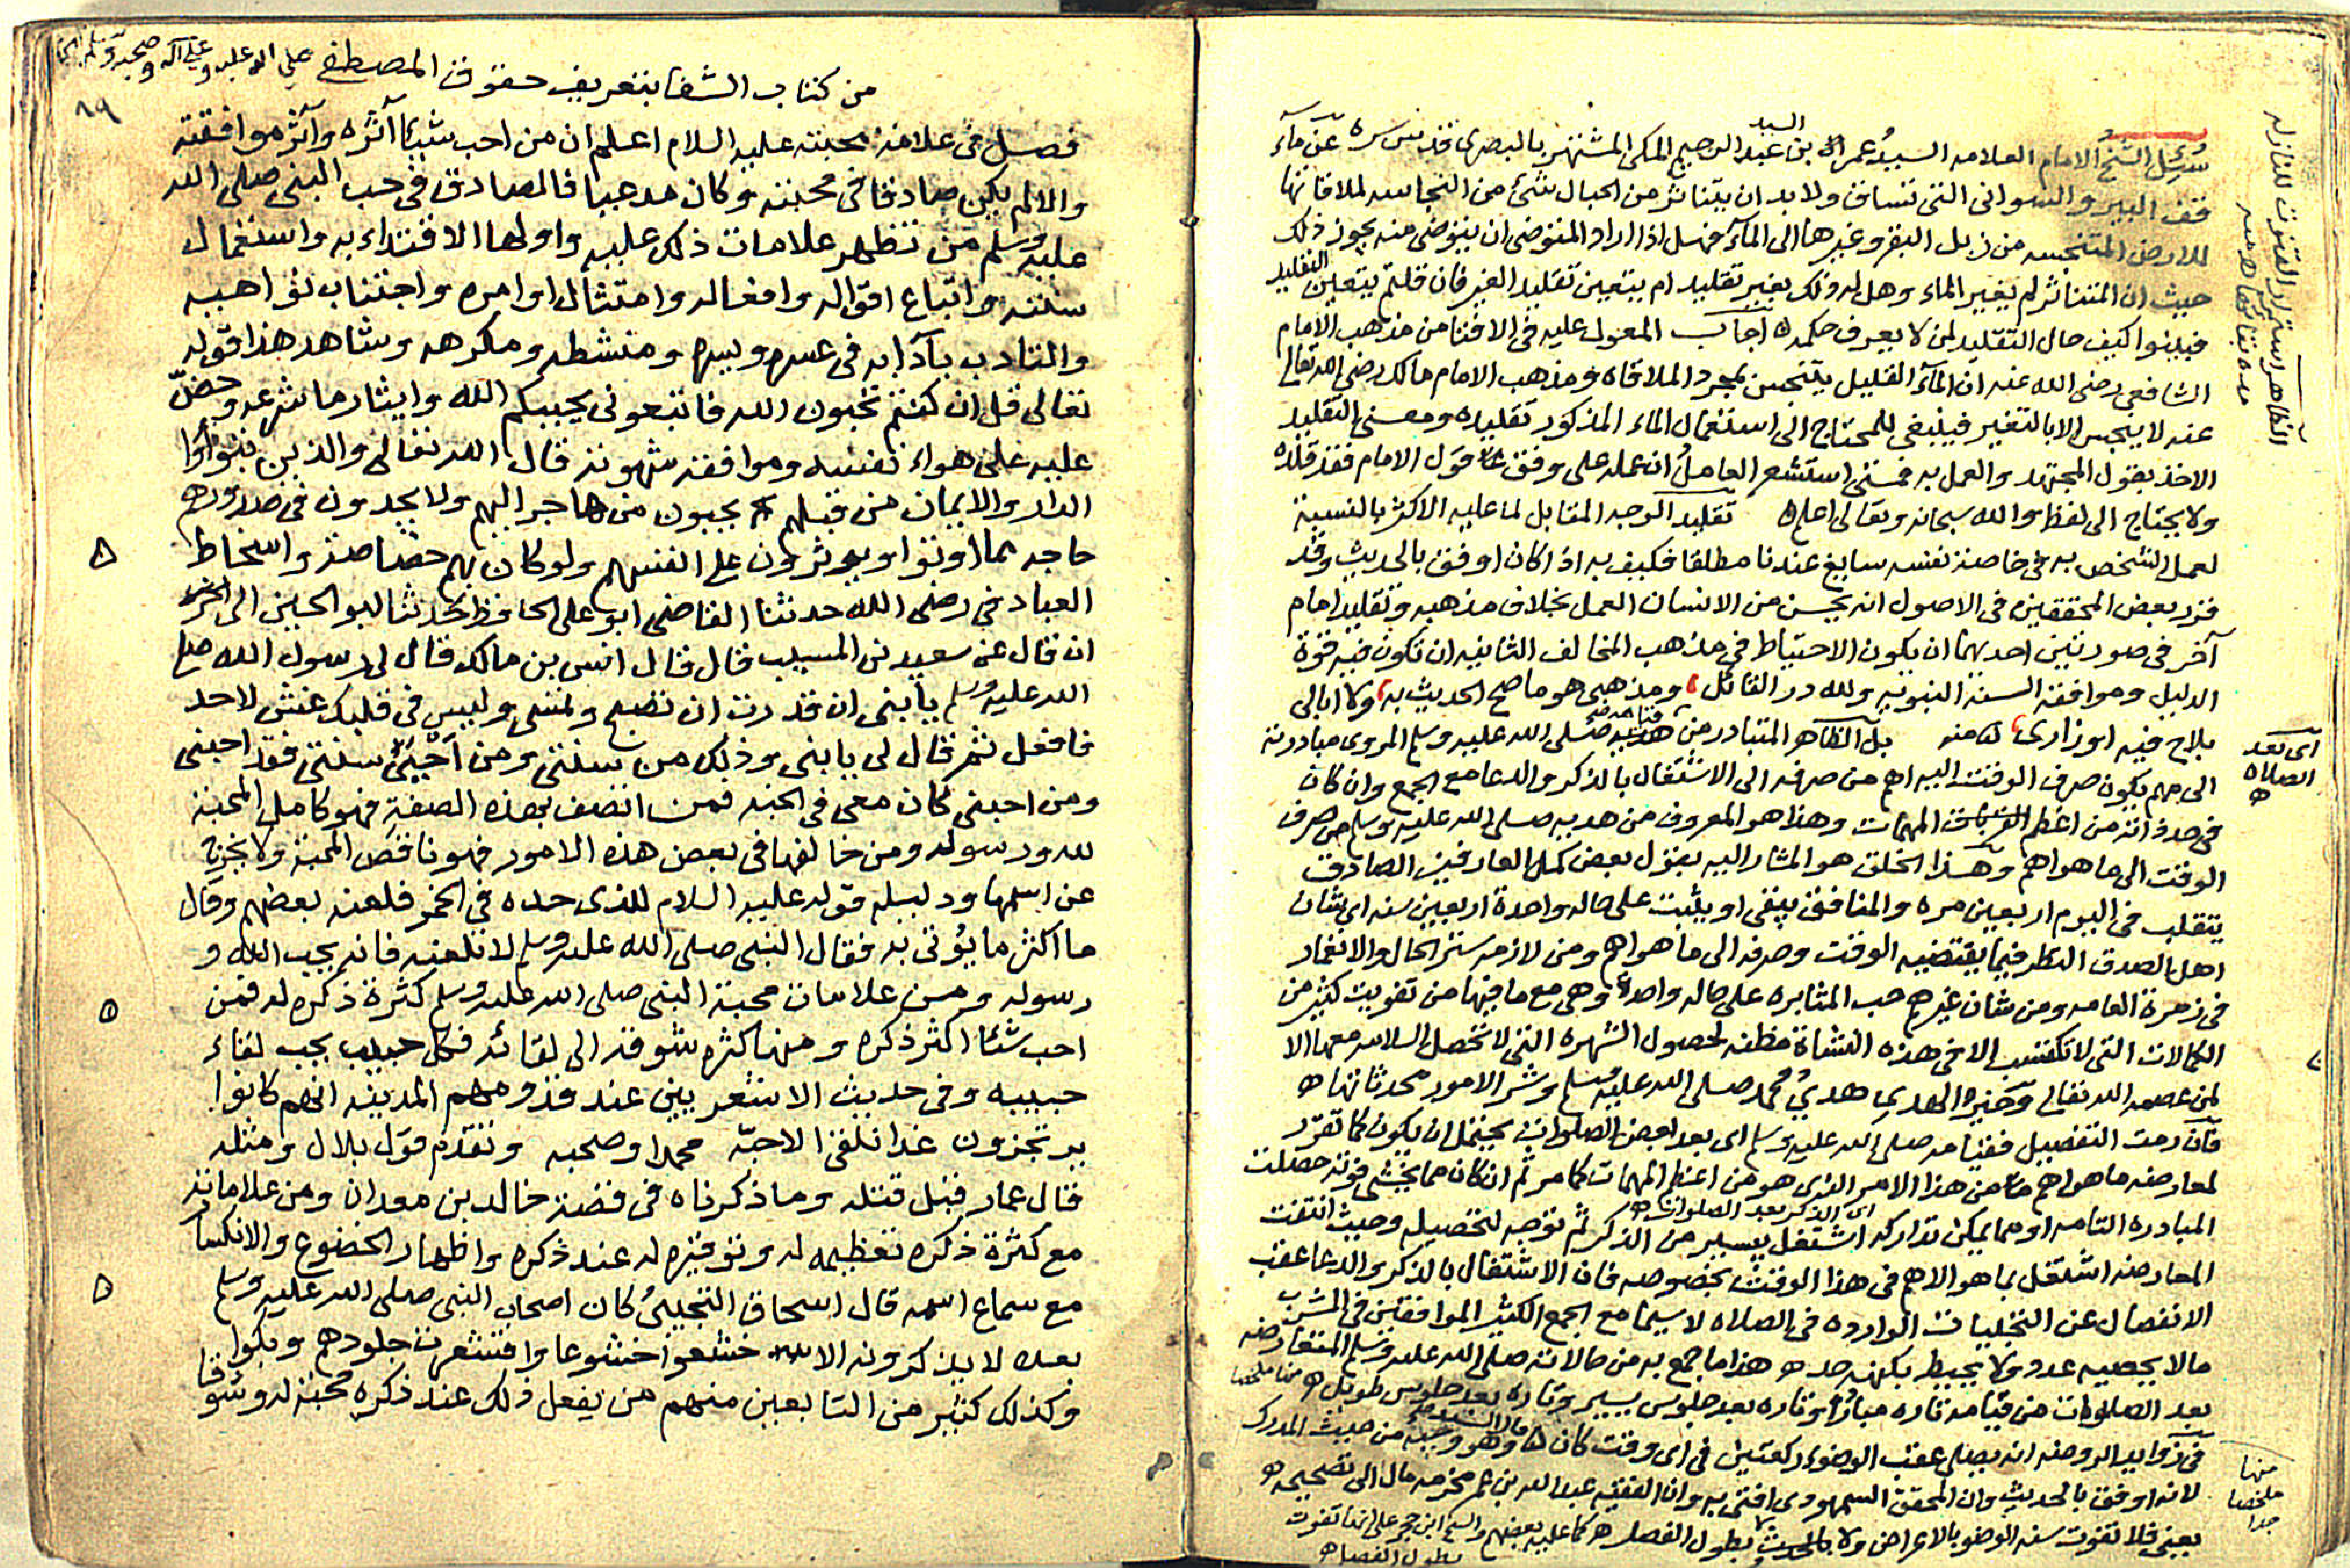 سئل الشيخ الامام العلامه السيد عمر بن السيد عبد الرحيم المكى المشتهر بالبصرى قدس سره عن مآء
فقد البير والسوانى التى تساق ولا بد ان يتناثر من الحبال شئ من النجاسه لملاقاتها
للارض المتنجسه من زبل البقر وغيرها الى المآء فهل اذا اراد المتوضى ان يتوضى منه يجوز ذلك
حيث ان المتناثر لم يغير الماء وهل له ذلك بغير تقليد ام يتعين تقليد الغير فان قلتم يتعين التقليد
فبينوا كيف حال التقليد لمن لا يعرف حكمه ه اجاب المعول عليه فى الافتا من مذهب الامام
الشافعى رضى الله عنه ان المآء القليل يتنجس بمجرد الملاقاه ومذهب الامام مالك رضى الله تعالى
عنه لا ينجس الا بالتغير فينبغى للمحتاج الى استعمال الماء المذكور تقليده ومعنى التقليد
الاخذ بقول المجتهد والعمل به فمتى استشعر العامل ان عمله على وفق قول الامام فقد قلده
ولا يحتاج الى لفظ والله سبحانه وتعالى اعلم ه تقليد الوجه المقابل لما عليه الاكثر بالنسبة
لعمل الشخص به فى خاصة نفسه سايغ عندنا مطلقا فكيف به اذا كان اوفق بالحديث وقد
قرر بعض المحققين فى الاصول انه يحسن من الانسان العمل بخلاف مذهبه وتقليد امام
آخر فى صورتين احديهما ان يكون الاحتياط فى مذهب المخالف الثانيه ان تكون فيه قوة
الدليل وموافقة السنة النبويه ولله در القائل ومذهبى هو ما صح الحديث به ولا ابالى
بلاح فيه او زارى ه منه بل الظاهر المتبادر من هديه صلى الله عليه وسلم المروى مبادرته
الى مهم يكون صرف الوقت اليه اهم من صرفه الى الاشتغال بالذكر والدعا مع الجمع وان كان
فى حد ذاته من اعظم المهمات وهذا هو المعروف من هديه صلى الله عليه وسلم من صرف
الوقت الى ما هو اهم وهذا الخلق هو المشار اليه بقول بعض كمل العارفين الصادق
يتقلب فى اليوم اربعين مره والمنافق يبقى او يثبت على حاله واحدة اربعين سنه اى شان
اهل الصدق النظر فيما يقتضيه الوقت وصرفه الى ما هو اهم ومن لازمه ستر الحال والانغمار
فى زمرة العامه ومن شان غيرهم حب المثابره على حاله واحده وهى مع ما فيها من تفويت كثير من
الكمالات التى لا تكتسب الا فى هذه النشاة مظنه لحصول الشهره التى لا تحصل السلامه معها الا
لمن عصمه الله تعالى وخير الهدى هدى محمد صلى الله عليه وسلم وشر الامور محدثاتها ه
فان رمت التفصيل فقيامه صلى الله عليه وسلم اى بعد بعض الصلوات يحتمل ان يكون كما تقرر
لمعارضه ما هو اهم من هذا الامر الذى هو من اعظم المهمات كما مر ثم ان كان مما يخشى فوته حصلت
المبادره التامه او مما يمكن تداركه اشتغل بيسير من الذكر اى الذكر بعد الصلوات ثم توجه لتحصيله وحيث انتفت
المعارضه اشتغل بما هو الاهم فى هذا الوقت بخصوصه فان الاشتغال بالذكر والدعا عقب
الانفصال عن التجليات الوارده فى الصلاه لا سيما مع الجمع الكثير الموافقين فى المشرب
مالا يحصيه عدد ولا يحيط بكنهه حد ه هذا ما جمع به من حالاته صلى الله عليه وسلم المتعارضه
بعد الصلوات من قيامه تاره مبادرا وتاره بعد جلوس يسير وتاره بعد جلوس طويل ه
فى زوايد الروضه انه يصلى عقب الوضوء ركعتين فى اى وقت كان وهو وجيه من حيث المدرك
لانه اوفق بالحديث وان المحقق السمهودى افتى به وان الفقيه عبد الله بن عمر مخرمه مال الى تصحيحه ه
يعنى فلا تفوت سنه الوضو بالاعراض ولا بالحدث بطول الفصل ه كما عليه بعضهم والشيخ ابن حجر على انها تفوت
بطول الفصل ه
الظاهر استمرار القنوت للنازله
اى بعد
الصلاه
ه
منها
ملخصا
جدا
من كتاب الشفا بتعريف حقوق المصطفى صلى الله عليه وعلى آله وصحبه وسلم
٨٩
فصل فى علامة محبته عليه السلام اعلم ان من احب شيئا آثره وآثر موافقته
والا لم يكن صادقا فى محبته وكان مدعيا فالصادق فى حب النبى صلى الله
عليه وسلم من تظهر علامات ذلك عليه واولها الاقتداء به واستعمال
سنته واتباع اقواله وافعاله وامتثال اوامره واجتناب نواهيه
والتادب بآدابه فى عسره ويسره ومنشطه ومكرهه وشاهد هذا قوله
تعالى قل ان كنتم تحبون الله فاتبعونى يحببكم الله وايثار ما شرعه وحض
عليه على هواء نفسه وموافقة شهوته قال الله تعالى والذين تبوأوا
الدار والايمان من قبلهم يحبون من هاجر اليهم ولا يجدون فى صدورهم
حاجه مما اوتوا ويوثرون على انفسهم ولو كان بهم خصاصة واسخاط
العباد فى رضى الله حدثنا القاضى ابو على الحافظ حدثنا ابو الحسين الى اخره
ان قال عن سعيد بن المسيب قال قال انس بن مالك قال لى رسول الله صلى
الله عليه وسلم يا بنى ان قدرت ان تصبح وتمسى وليس فى قلبك غش لاحد
فافعل ثم قال لى يا بنى وذلك من سنتى ومن احيى سنتى فقد احبنى
ومن احبنى كان معى فى الجنه فمن اتصف بهذه الصفة فهو كامل المحبة
لله ورسوله ومن خالفها فى بعض هذه الامور فهو ناقص المحبة ولا يخرج
عن اسمها ودليله قوله عليه السلام للذى حده فى الخمر فلعنه بعضهم وقال
ما اكثر ما يؤتى به فقال النبى صلى الله عليه وسلم لا تلعنه فانه يحب الله و
رسوله ومن علامات محبة النبى صلى الله عليه وسلم كثرة ذكره له فمن
احب شئا اكثر ذكره ومنها كثره شوقه الى لقائه فكل حبيب يحب لقاء
حبيبه وفى حديث الاشعريين عند قدومهم المدينه انهم كانوا
يرتجزون غدا نلقى الاحبه محمدا وصحبه وتقدم قول بلال ومثله
قال عمار قبل قتله وما ذكرناه فى قصة خالد بن معدان ومن علاماته
مع كثرة ذكره تعظيمه له وتوقيره له عند ذكره واظهار الخضوع والانكسار
مع سماع اسمه قال اسحاق التجيبى كان اصحاب النبى صلى الله عليه وسلم
بعده لا يذكرونه الا خشعوا خشوعا واقشعرت جلودهم وبكوا
وكذلك كثير من التابعين منهم من يفعل ذلك عند ذكره محبة له وشوقا